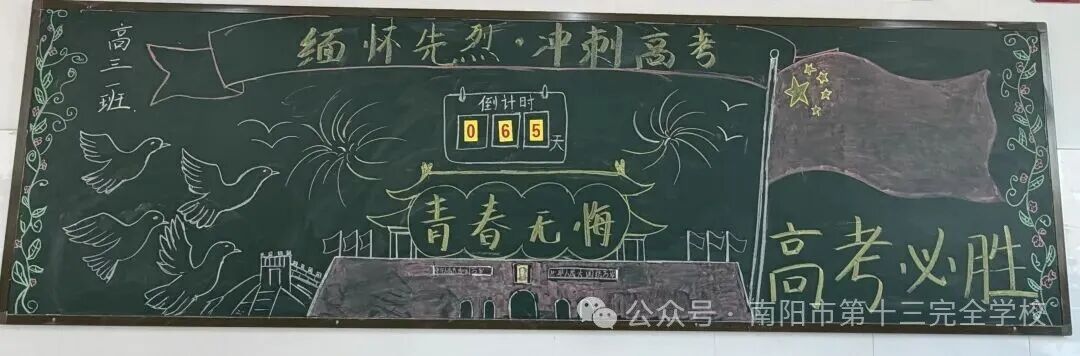 高三班
缅怀先烈·冲刺高考
倒计时
065天
青春无悔
高考必胜
公众号·南阳市第十三完全学校